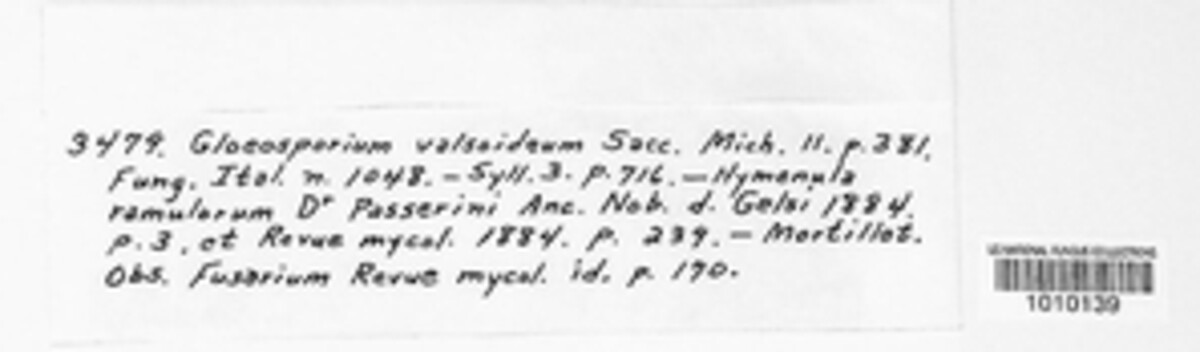 3479. Gloeosporium valsoideum Sacc. Mich. II. p. 381.
Fung. Ital. n. 1048. — Syll. 3. p. 716. — Hymenula
ramulorum Dr Passerini Anc. Nob. d. Gelsi 1884.
p. 3, et Revue mycol. 1884. p. 239. — Mortillet.
Obs. Fusarium Revue mycol. id. p. 170.
US NATIONAL FUNGUS COLLECTIONS
1010139